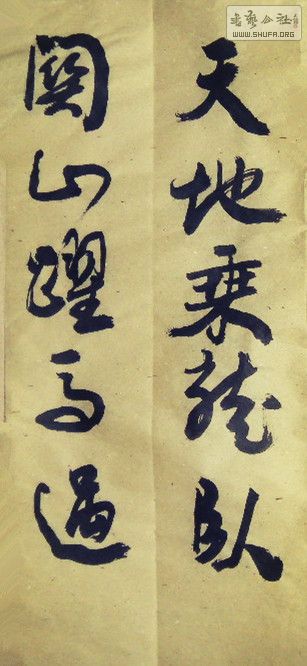 天地乘龍臥
關山躍馬過
書藝公社
WWW.SHUFA.ORG